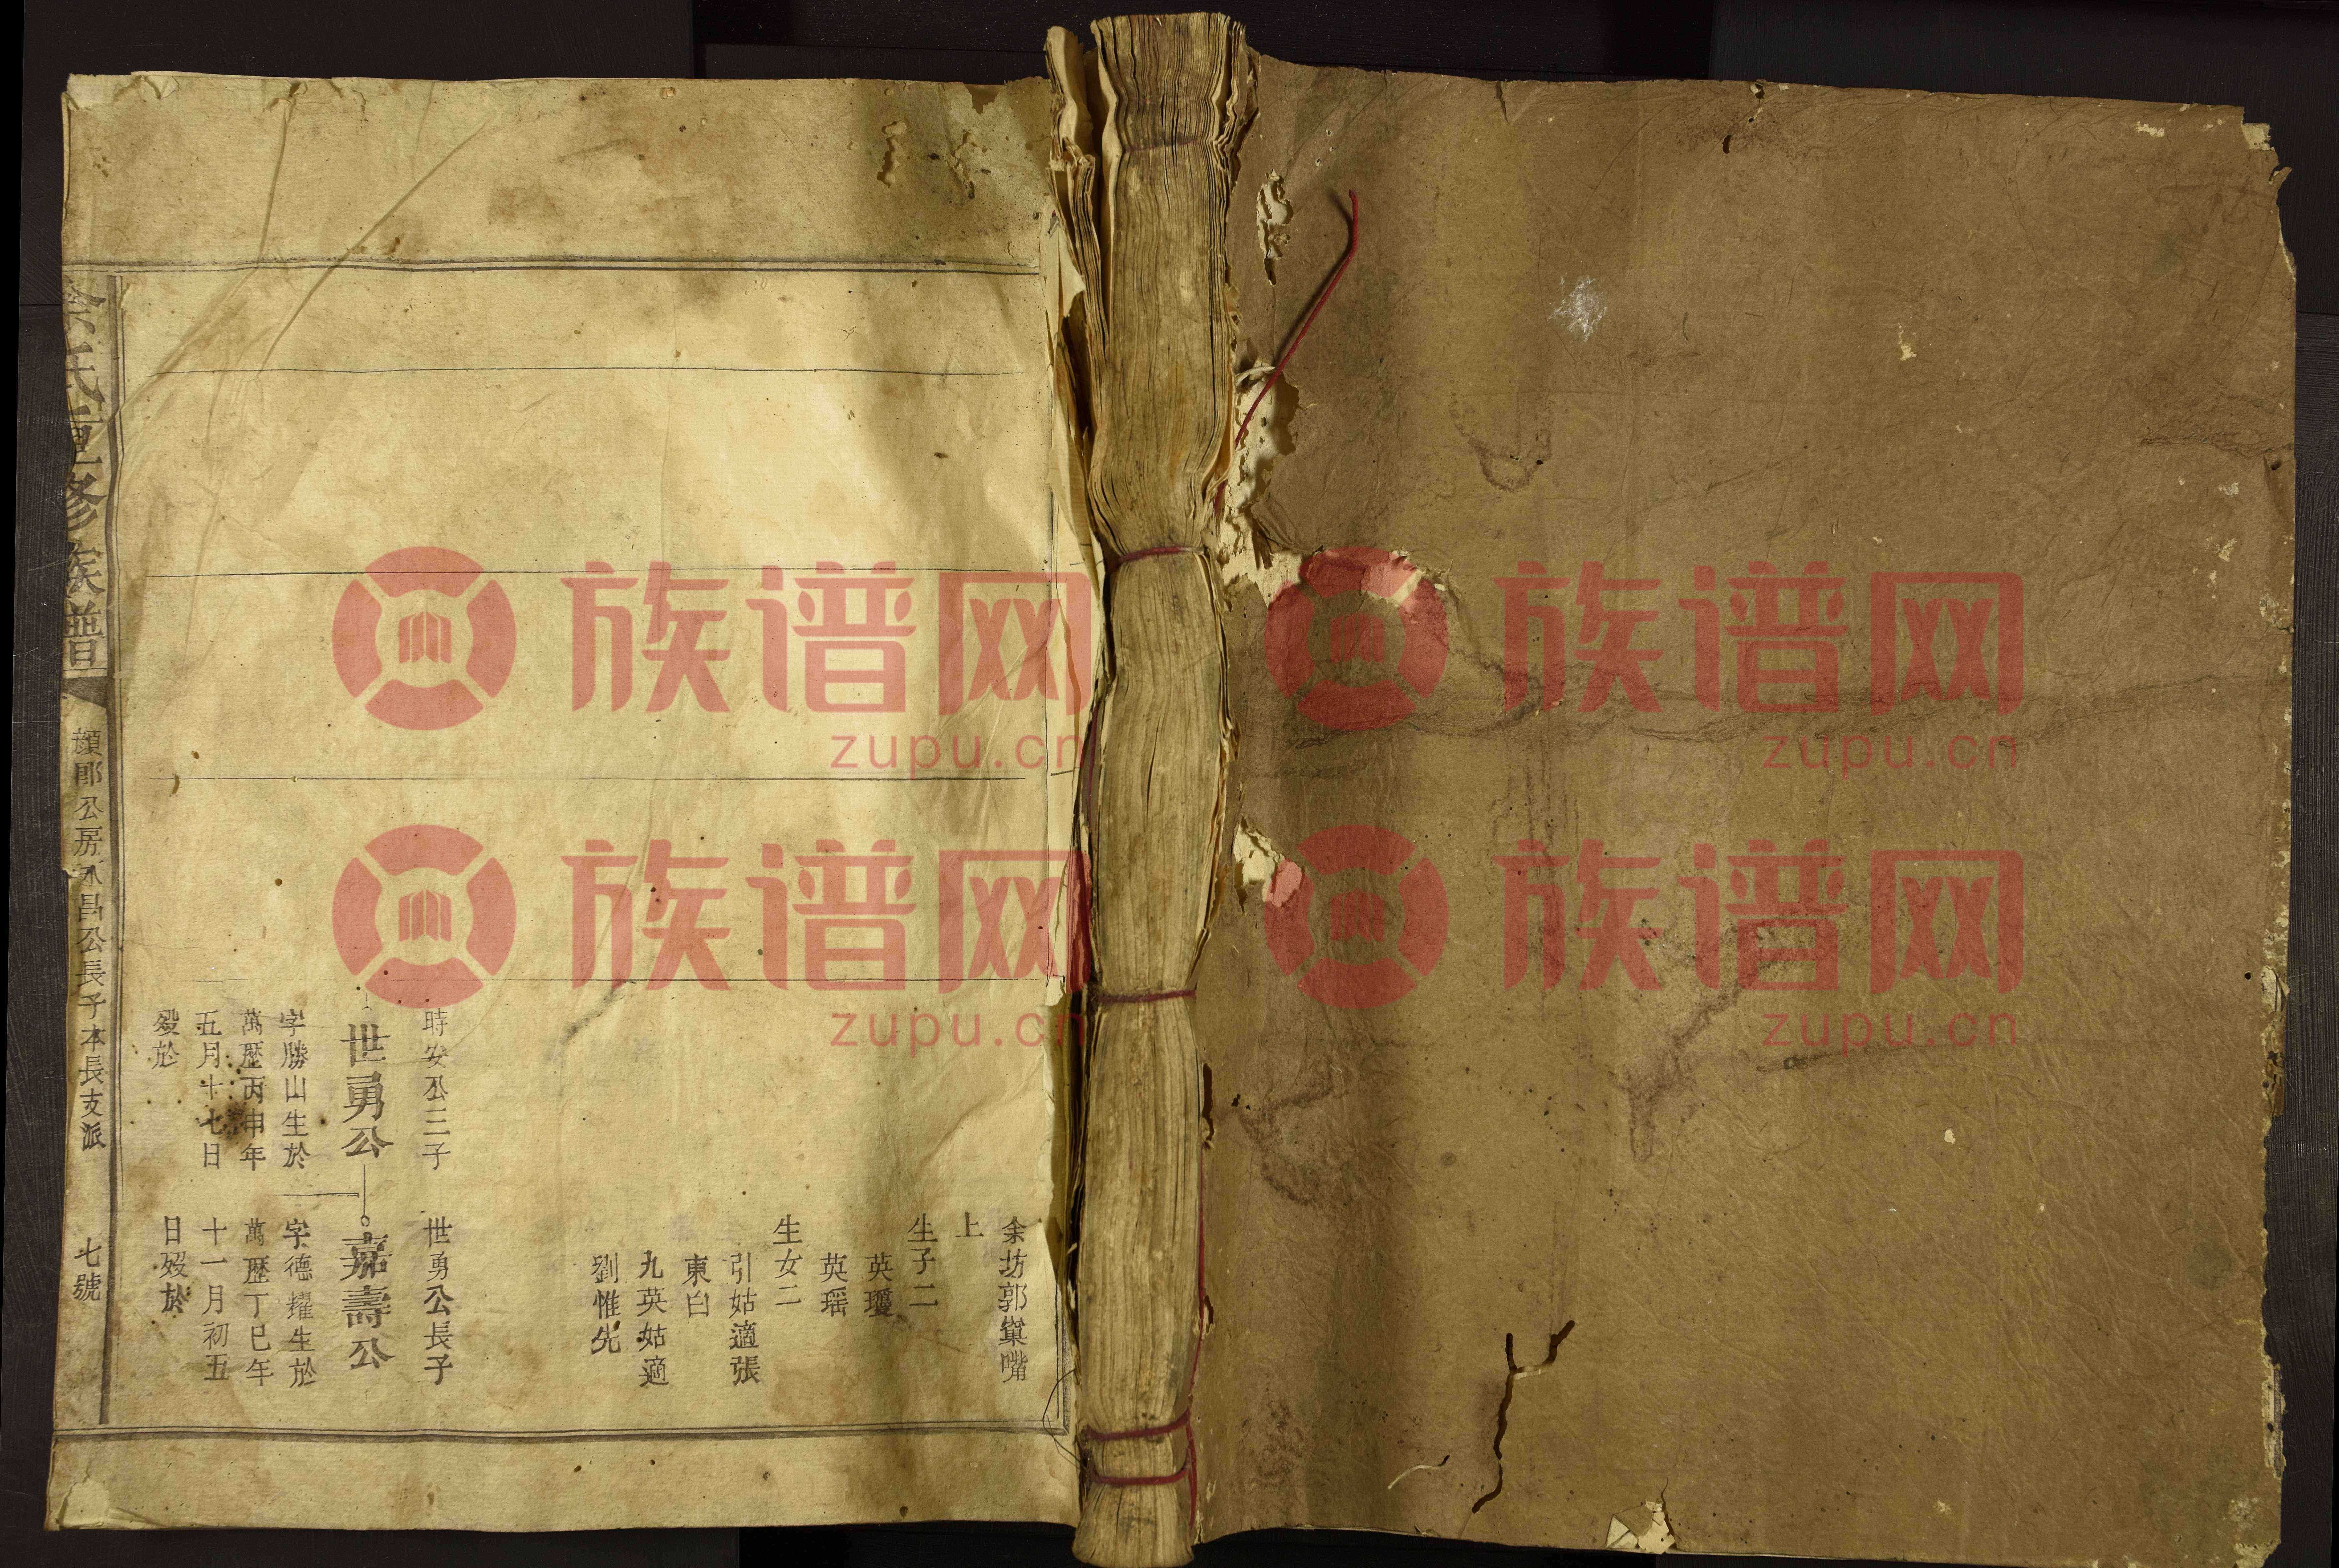 余坊郭巢嘴
上
生子二
英瓊
英瑶
生女二
引姑適張
東白
九英姑適
劉惟先
時安公三子
世勇公
字勝山生於
萬歷丙申年
五月十七日
殁於
世勇公長子
嘉壽公
字德耀生於
萬歷丁巳年
十一月初五
日殁於
余氏重修族譜
頠郎公房永昌公長子本長支派
七號
族谱网
zupu.cn
族谱网
zupu.cn
族谱网
zupu.cn
族谱网
zupu.cn